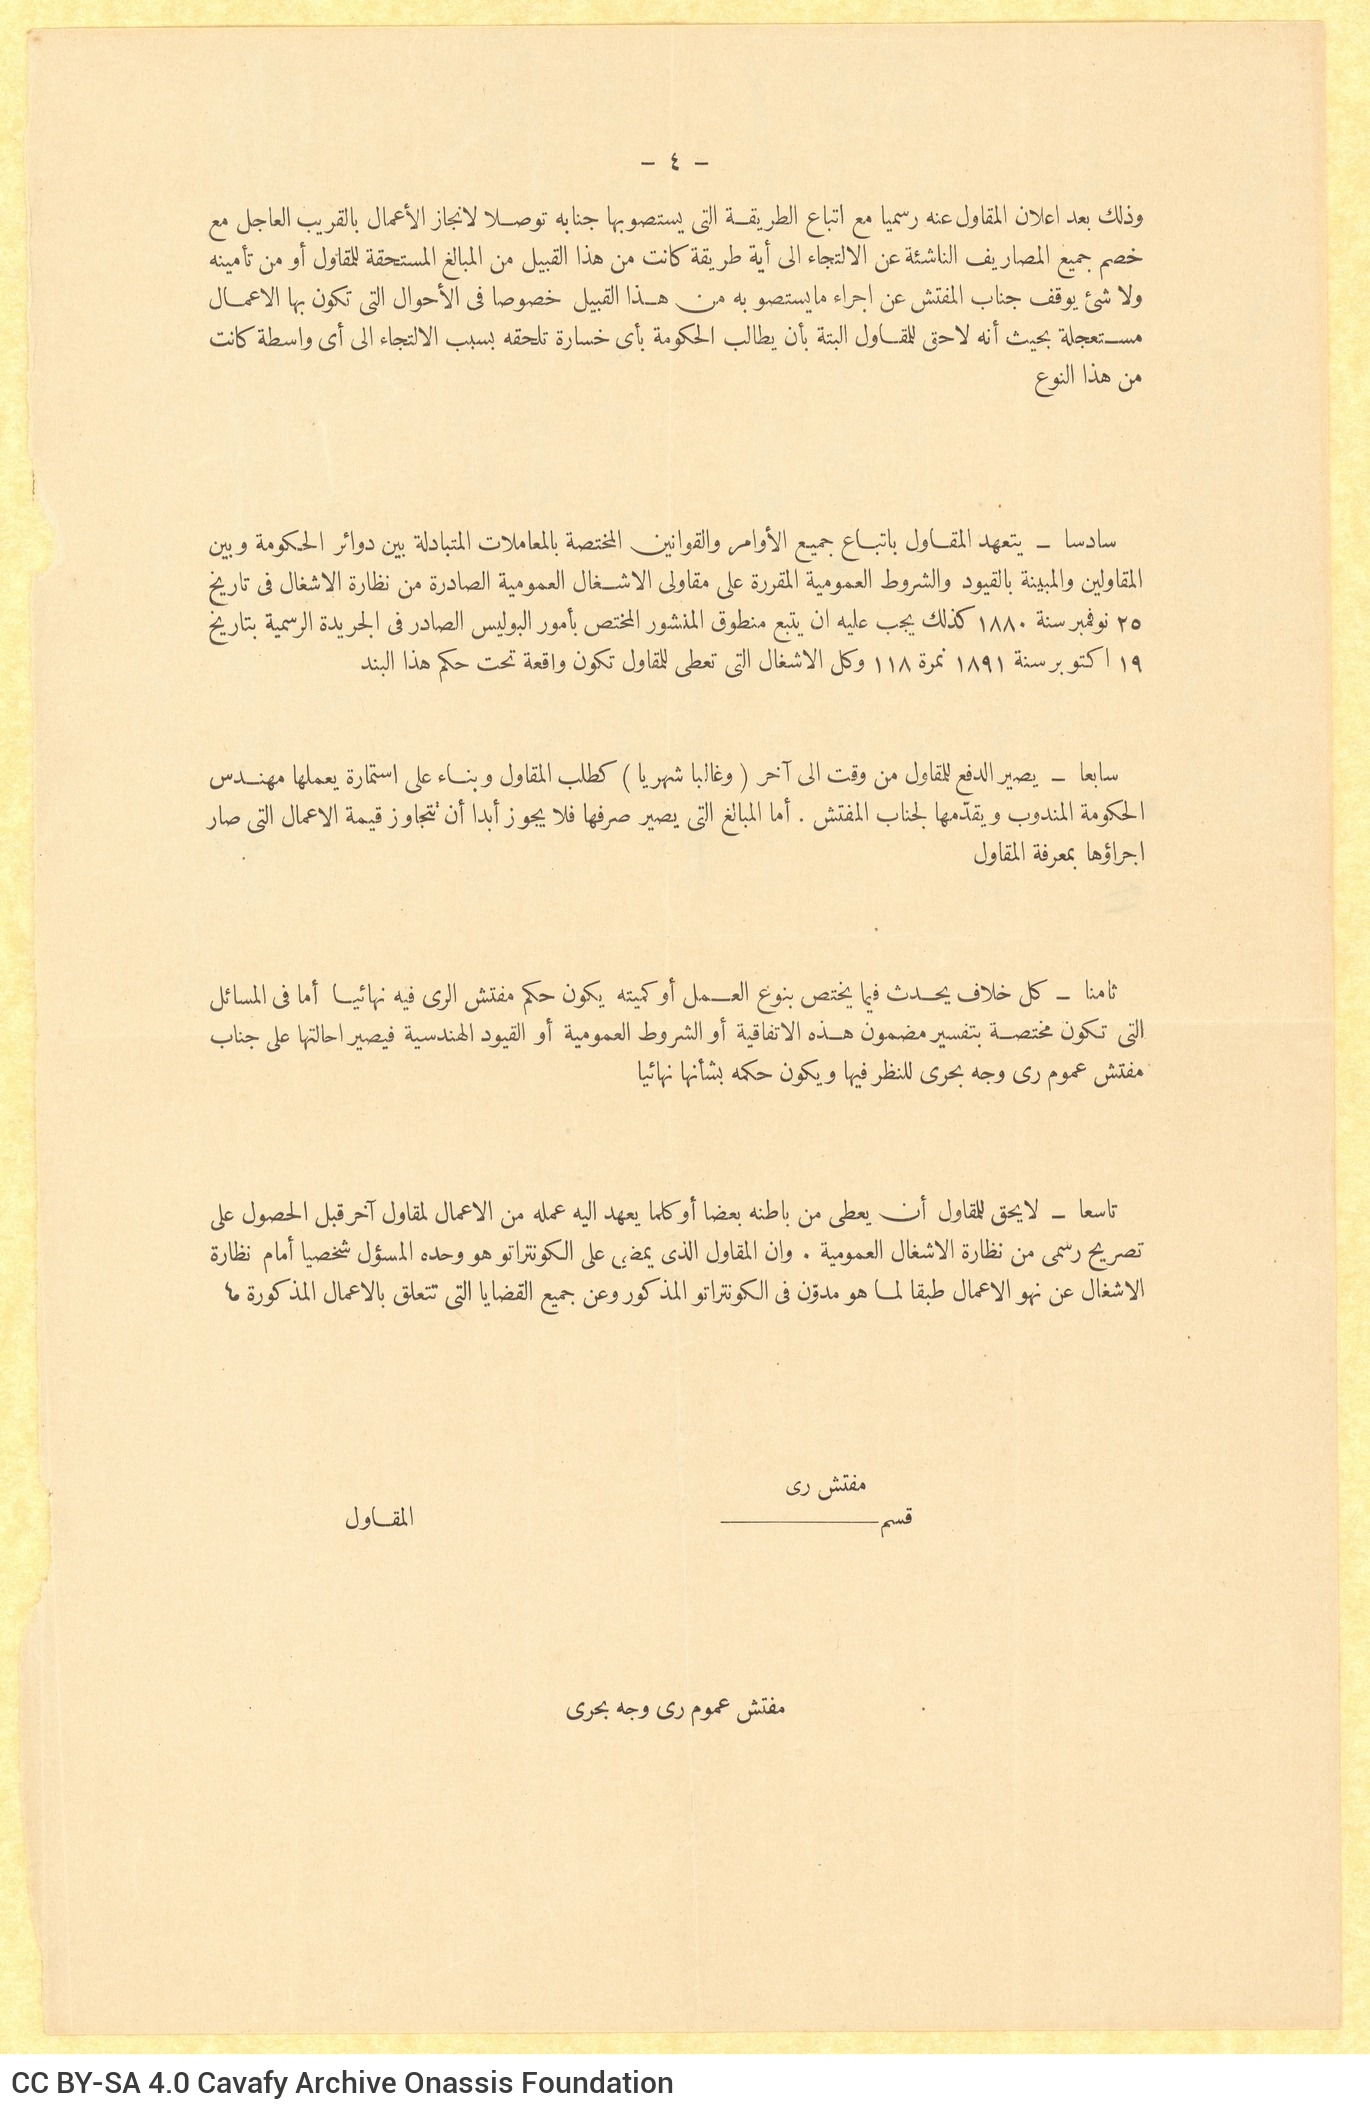 – ٤ –
وذلك بعد اعلان المقاول عنه رسميا مع اتباع الطريقة التى يستصوبها جنابه توصلا لانجاز الأعمال بالقريب العاجل مع
خصم جميع المصاريف الناشئة عن الالتجاء الى أية طريقة كانت من هذا القبيل من المبالغ المستحقة للمقاول أو من تأمينه
ولا شئ يوقف جناب المفتش عن اجراء مايستصوبه من هذا القبيل خصوصا فى الأحوال التى تكون بها الاعمال
مستعجلة بحيث أنه لاحق للمقاول البتة بأن يطالب الحكومة بأى خسارة تلحقه بسبب الالتجاء الى أى واسطة كانت
من هذا النوع
سادسا – يتعهد المقاول باتباع جميع الأوامر والقوانين المختصة بالمعاملات المتبادلة بين دوائر الحكومة وبين
المقاولين والمبينة بالقيود والشروط العمومية المقررة على مقاولى الاشغال العمومية الصادرة من نظارة الاشغال فى تاريخ
٢٥ نوفمبر سنة ١٨٨٠ كذلك يجب عليه ان يتبع منطوق المنشور المختص بأمور البوليس الصادر فى الجريدة الرسمية بتاريخ
١٩ اكتوبر سنة ١٨٩١ نمرة ١١٨ وكل الاشغال التى تعطى للمقاول تكون واقعة تحت حكم هذا البند
سابعا – يصير الدفع للمقاول من وقت الى آخر ( وغالبا شهريا ) كطلب المقاول وبناء على استمارة يعملها مهندس
الحكومة المندوب ويقدّمها لجناب المفتش . أما المبالغ التى يصير صرفها فلا يجوز أبدا أن تتجاوز قيمة الاعمال التى صار
اجراؤها بمعرفة المقاول
ثامنا – كل خلاف يحدث فيما يختص بنوع العمل أو كميته يكون حكم مفتش الرى فيه نهائيا أما فى المسائل
التى تكون مختصة بتفسير مضمون هذه الاتفاقية أو الشروط العمومية أو القيود الهندسية فيصير احالتها على جناب
مفتش عموم رى وجه بحرى للنظر فيها ويكون حكمه بشأنها نهائيا
تاسعا – لايحق للمقاول أن يعطى من باطنه بعضا أو كلما يعهد اليه عمله من الاعمال لمقاول آخر قبل الحصول على
تصريح رسمى من نظارة الاشغال العمومية . وان المقاول الذى يمضى على الكونتراتو هو وحده المسؤل شخصيا أمام نظارة
الاشغال عن نهو الاعمال طبقا لما هو مدوّن فى الكونتراتو المذكور وعن جميع القضايا التى تتعلق بالاعمال المذكورة
مفتش رى
قسم المقاول
مفتش عموم رى وجه بحرى
CC BY-SA 4.0 Cavafy Archive Onassis Foundation